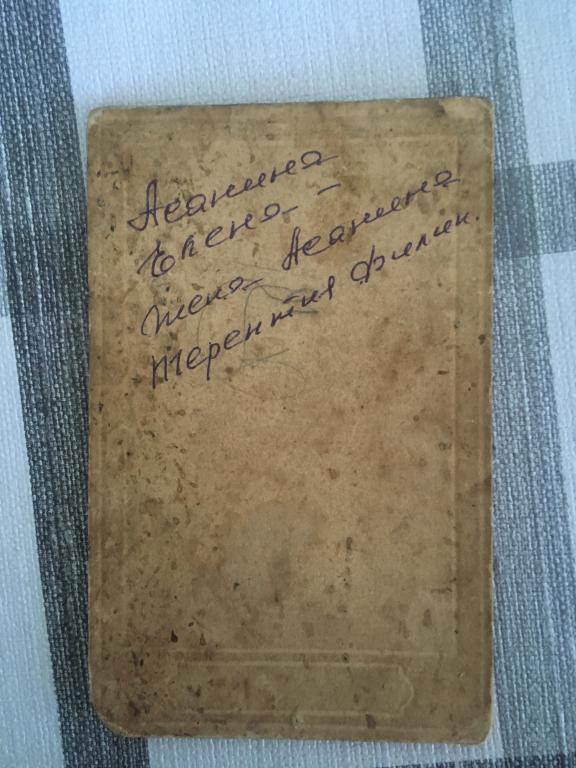 Асанина
Елена -
жена Асанина
Терентия Филип.